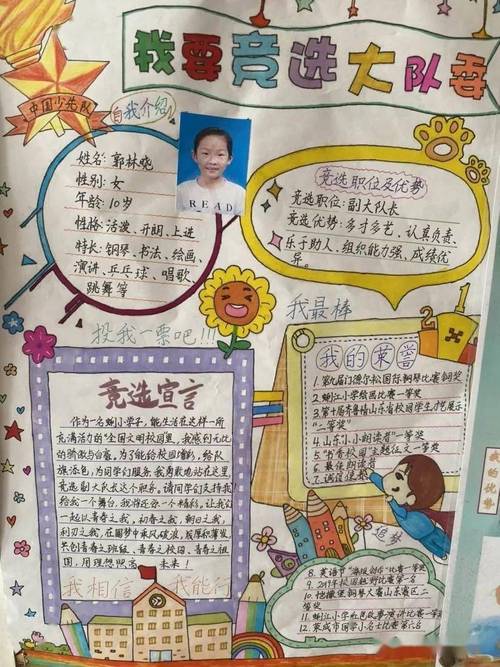 我要竞选大队委
中国少先队
自我介绍
姓名:郭林晓
性别:女
年龄:10岁
性格:活泼、开朗、上进
特长:钢琴、书法、绘画、
演讲、乒乓球、唱歌、
跳舞等
READ
竞选职位及优势
竞选职位:副大队长
竞选优势:多才多艺、认真负责、
乐于助人、组织能力强、成绩优
异。
投我一票吧!!!
我最棒
2
1
竞选宣言
作为一名小学子,能生活在这样一所
充满活力的"全国文明校园里,我感到无比
的骄傲与自豪,为了能给校园增彩,给队
旗添色,为同学们服务,我勇敢地站在这里
竞选副大队长这个职务。请同学们支持我!
给我一个舞台,我将还您一个精彩,让我们
一起以青春之我,
利刃之我,在圆梦中乘风破浪,发厚积薄发
共创青春之班级、青春之校园、青春之祖国
用理想照亮未来!
我相信
我能行
我的荣誉
1.第九届门德尔松国际钢琴比赛铜奖
2.小学绘画比赛一等奖
3.第十届齐鲁情山东省校园学生才艺展示
"二等奖"
4.山东小小朗读者"一等奖
5."书香校园"主题征文一等奖
6.最佳朗读者
7.诚信
追梦
8.英语节"海报创作"比赛一等奖
9.2019年校园越野比赛第一名
10.恺撒堡钢琴大赛山东省区二
等奖
11.小学红色故事演讲比赛一等奖
12.莱芜市国学小名士比赛第六名